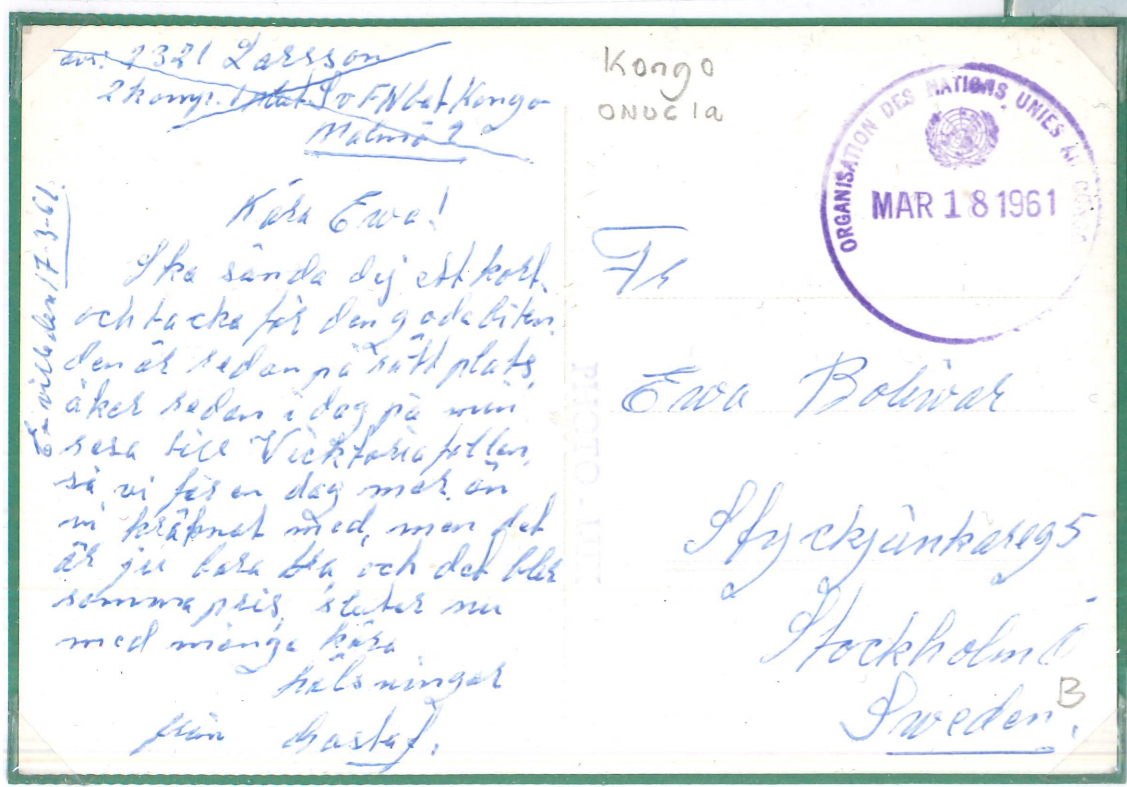 avs. 2321 Larsson
2 komp. 1 plut. Sv FN bat Kongo
Malmö 2
Kära Ewa!
Ska sända dej ett kort
och tacka för den goda biten,
den är redan på rätt plats,
åker redan i dag på min
resa till Vicktoriafallen,
så vi får en dag mer än
vi räknat med, men det
är ju bara bra och det blir
samma pris, slutar nu
med många kära
hälsningar
från Gustaf.
E-ville den 17-3-61.
Kongo
ONUC 1a
ORGANISATION DES NATIONS UNIES AU CONGO
MAR 18 1961
Fr
Ewa Boliwar
Styckjunkareg 5
Stockholm Ö
Sweden.
B